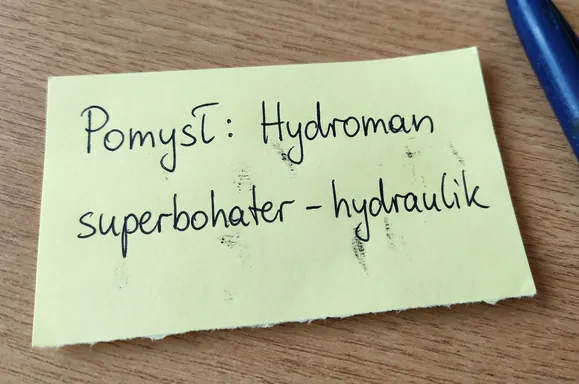 Pomysł: Hydroman
superbohater – hydraulik